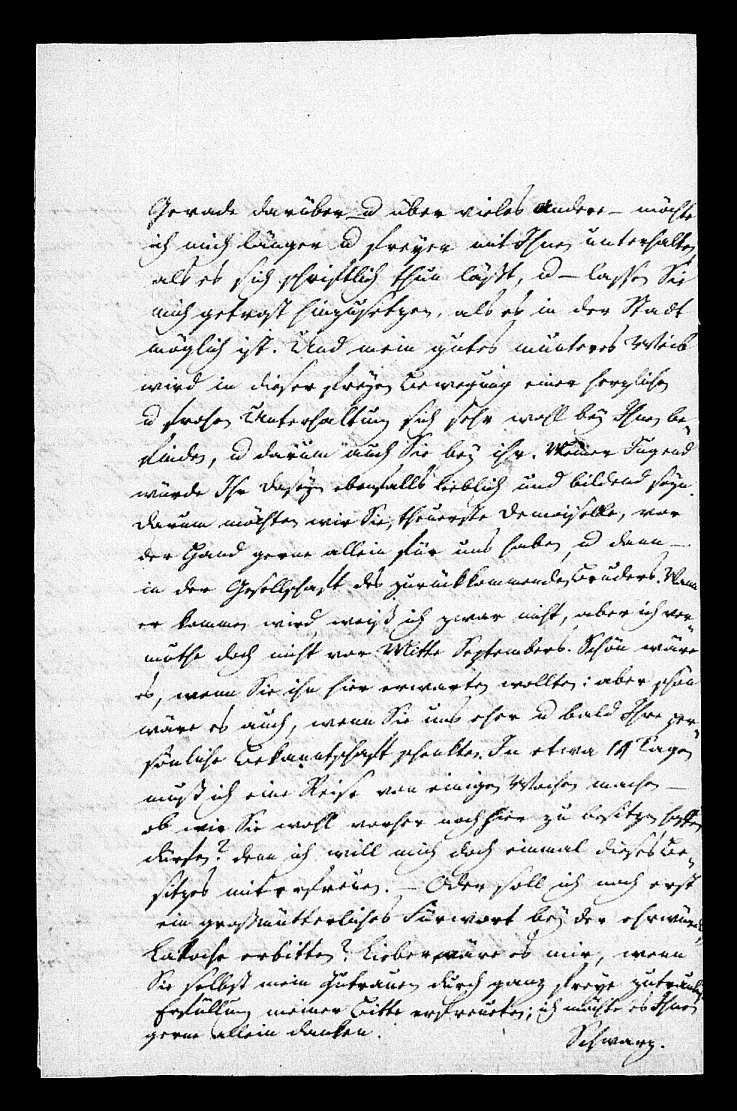 Gerade darüber u über vieles andere – möchte
ich mich länger u freyer mit Ihnen unterhalten,
als es sich schriftlich thun läßt, u – lassen Sie
mich getrost hinzusetzen, als es in der Stadt
möglich ist. Und mein gutes munteres Weib
wird in dieser freyen Bewegung einer herzlichen
u frohen Unterhaltung sich sehr wohl bey Ihnen be
finden, u darum auch Sie bey ihr. Meiner Jugend
würde Ihr Daseyn ebenfalls lieblich und bildend seyn.
Darum möchten wir Sie, theuerste Demoiselle, vor
der Hand gerne allein für uns haben, u dann –
in der Gesellschaft des zurückkommenden Bruders. Wann
er kommen wird weiß ich zwar nicht, aber ich ver
muthe doch nicht vor Mitte Septembers. Schön wäre
es, wenn Sie ihn hier erwarten wollten: aber schön
wäre es auch, wenn Sie uns eher u bald Ihre per
sönliche Bekanntschaft schenkten. In etwa 14 Tagen
muß ich eine Reise von einigen Wochen machen –
ob wir Sie wohl vorher noch hier zu besitzen hoffen
dürfen? denn ich will mich doch einmal dieses Be
sitzes mit erfreuen. – Oder soll ich noch erst
ein großmütterliches Fürwort bey der ehrwürd.
erbitten? Lieber wäre es mir, wenn
Sie selbst mein Zutrauen durch ganz freye
Erfüllung meiner Bitte erfreueten; ich möchte es Ihnen
gerne allein danken.
Schwarz.